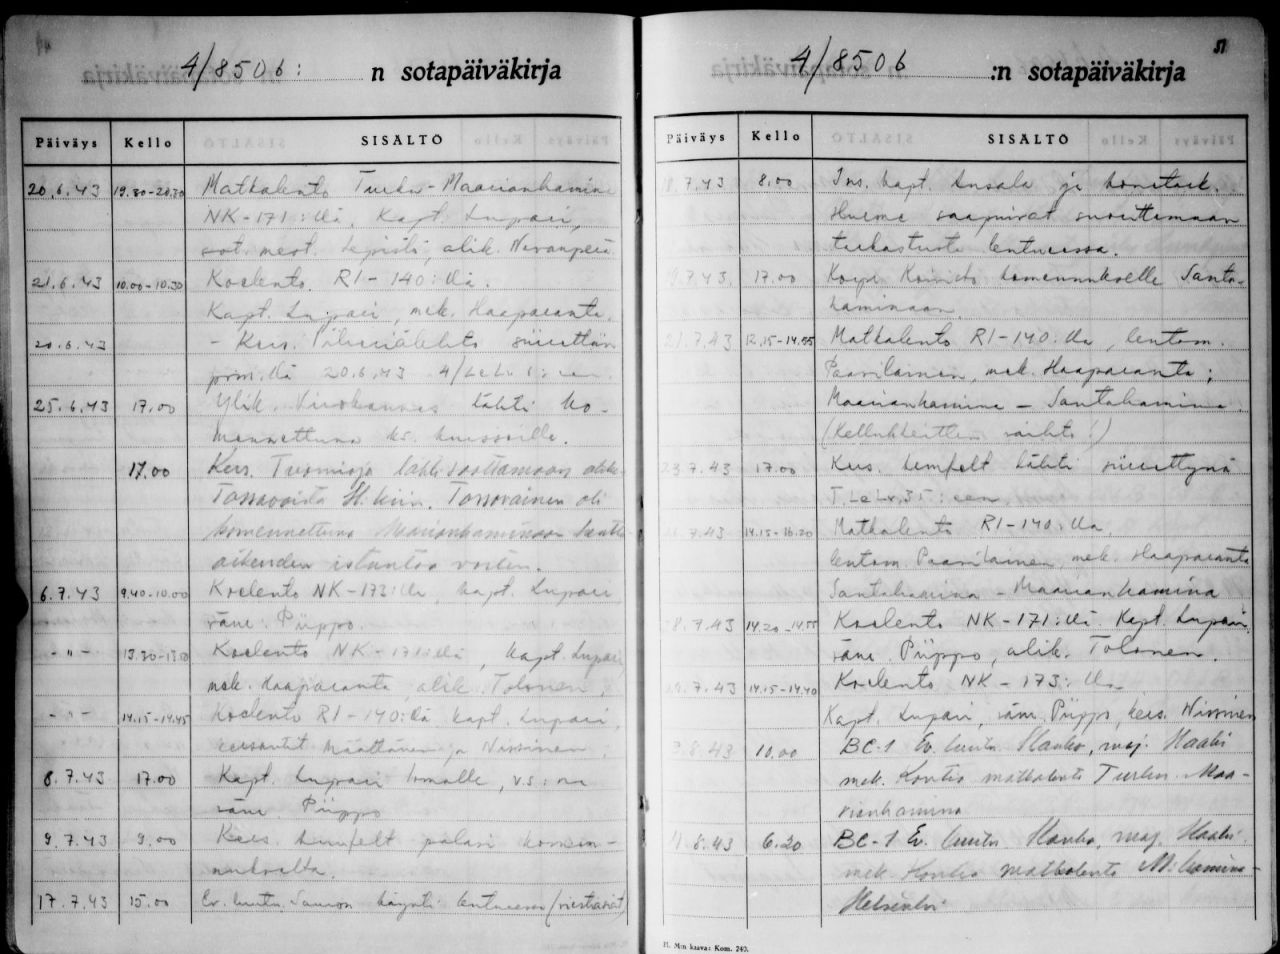 4/8506: n sotapäiväkirja
Päiväys Kello SISÄLTÖ
20.6.43 19.30-20.30 Matkalento Turku-Maarianhamina
NK-171:llä, Kapt. Lupari,
sot. mest. Sepistö, alik. Nevanperä
21.6.43 10.00-10.30 Koelento. RI-140:llä.
Kapt. Lupari, mek. Haaparanta.
20.6.43 - Kers. siirrettiin
20.6.43 4/LeLv 6:een.
25.6.43 17.00 Ylik. lähti ko-
mennettuna ks. kurssille.
17.00 Kers. Tuomioja lähti saattamaan alik.
H:kiin. Tossavainen oli
komennettuna Maarianhaminaan
oikeuden istuntoa varten.
6.7.43 9.40-10.00 Koelento NK-173:lla, kapt. Lupari,
vänr. Piippo.
-"- 13.30- Koelento NK-171:llä, kapt. Lupari,
mek. Haaparanta, alik. Tolonen,
-"- 14.15-14.45 Koelento RI-140:llä kapt. Lupari,
kersantit Määttänen ja Nissinen;
8.7.43 17.00 Kapt. Lupari lomalle, v.s.:na
vänr. Piippo
9.7.43 9.00 Kers. Lemfelt palasi komen-
nukselta.
17.7.43 15.00 Ev. luutn. Saxman käynti lentueessa (viestiasiat)
4/8506 :n sotapäiväkirja 51
Päiväys Kello SISÄLTÖ
18.7.43 8.00 Ins. kapt. Ansala ja
Hurme saapuivat suorittamaan
tarkastusta lentueessa.
19.7.43 17.00 Korpr. komennukselle Santa-
haminaan.
21.7.43 12.15-14.55 Matkalento RI-140:lla, lentom.
Paarilainen, mek. Haaparanta;
Maarianhamina - Santahamina.
(Kellukkeitten vaihto!)
23.7.43 17.00 Kers. Lemfelt lähti siirrettynä
T.LeLv.35:een
7.43 14.15-16.20 Matkalento RI-140:lla,
lentom. Paarilainen, mek. Haaparanta
Santahamina - Maarianhamina
28.7.43 14.20-14.55 Koelento NK-171:llä Kapt. Lupari,
vänr. Piippo, alik. Tolonen.
7.43 14.15-14.40 Koelento NK-173:lla
Kapt. Lupari, vänr. Piippo, kers. Nissinen
3.8.43 10.00 BC-1 Ev. luutn Hanko, maj. Haahi
mek. Kontio matkalento Turku-Maa-
rianhamina
4.8.43 6.20 BC-1 Ev. luutn Hanko, maj. Haahi
mek. Kontio matkalento M:hamina-
Helsinki
H. Min kaava: Kom. 240.